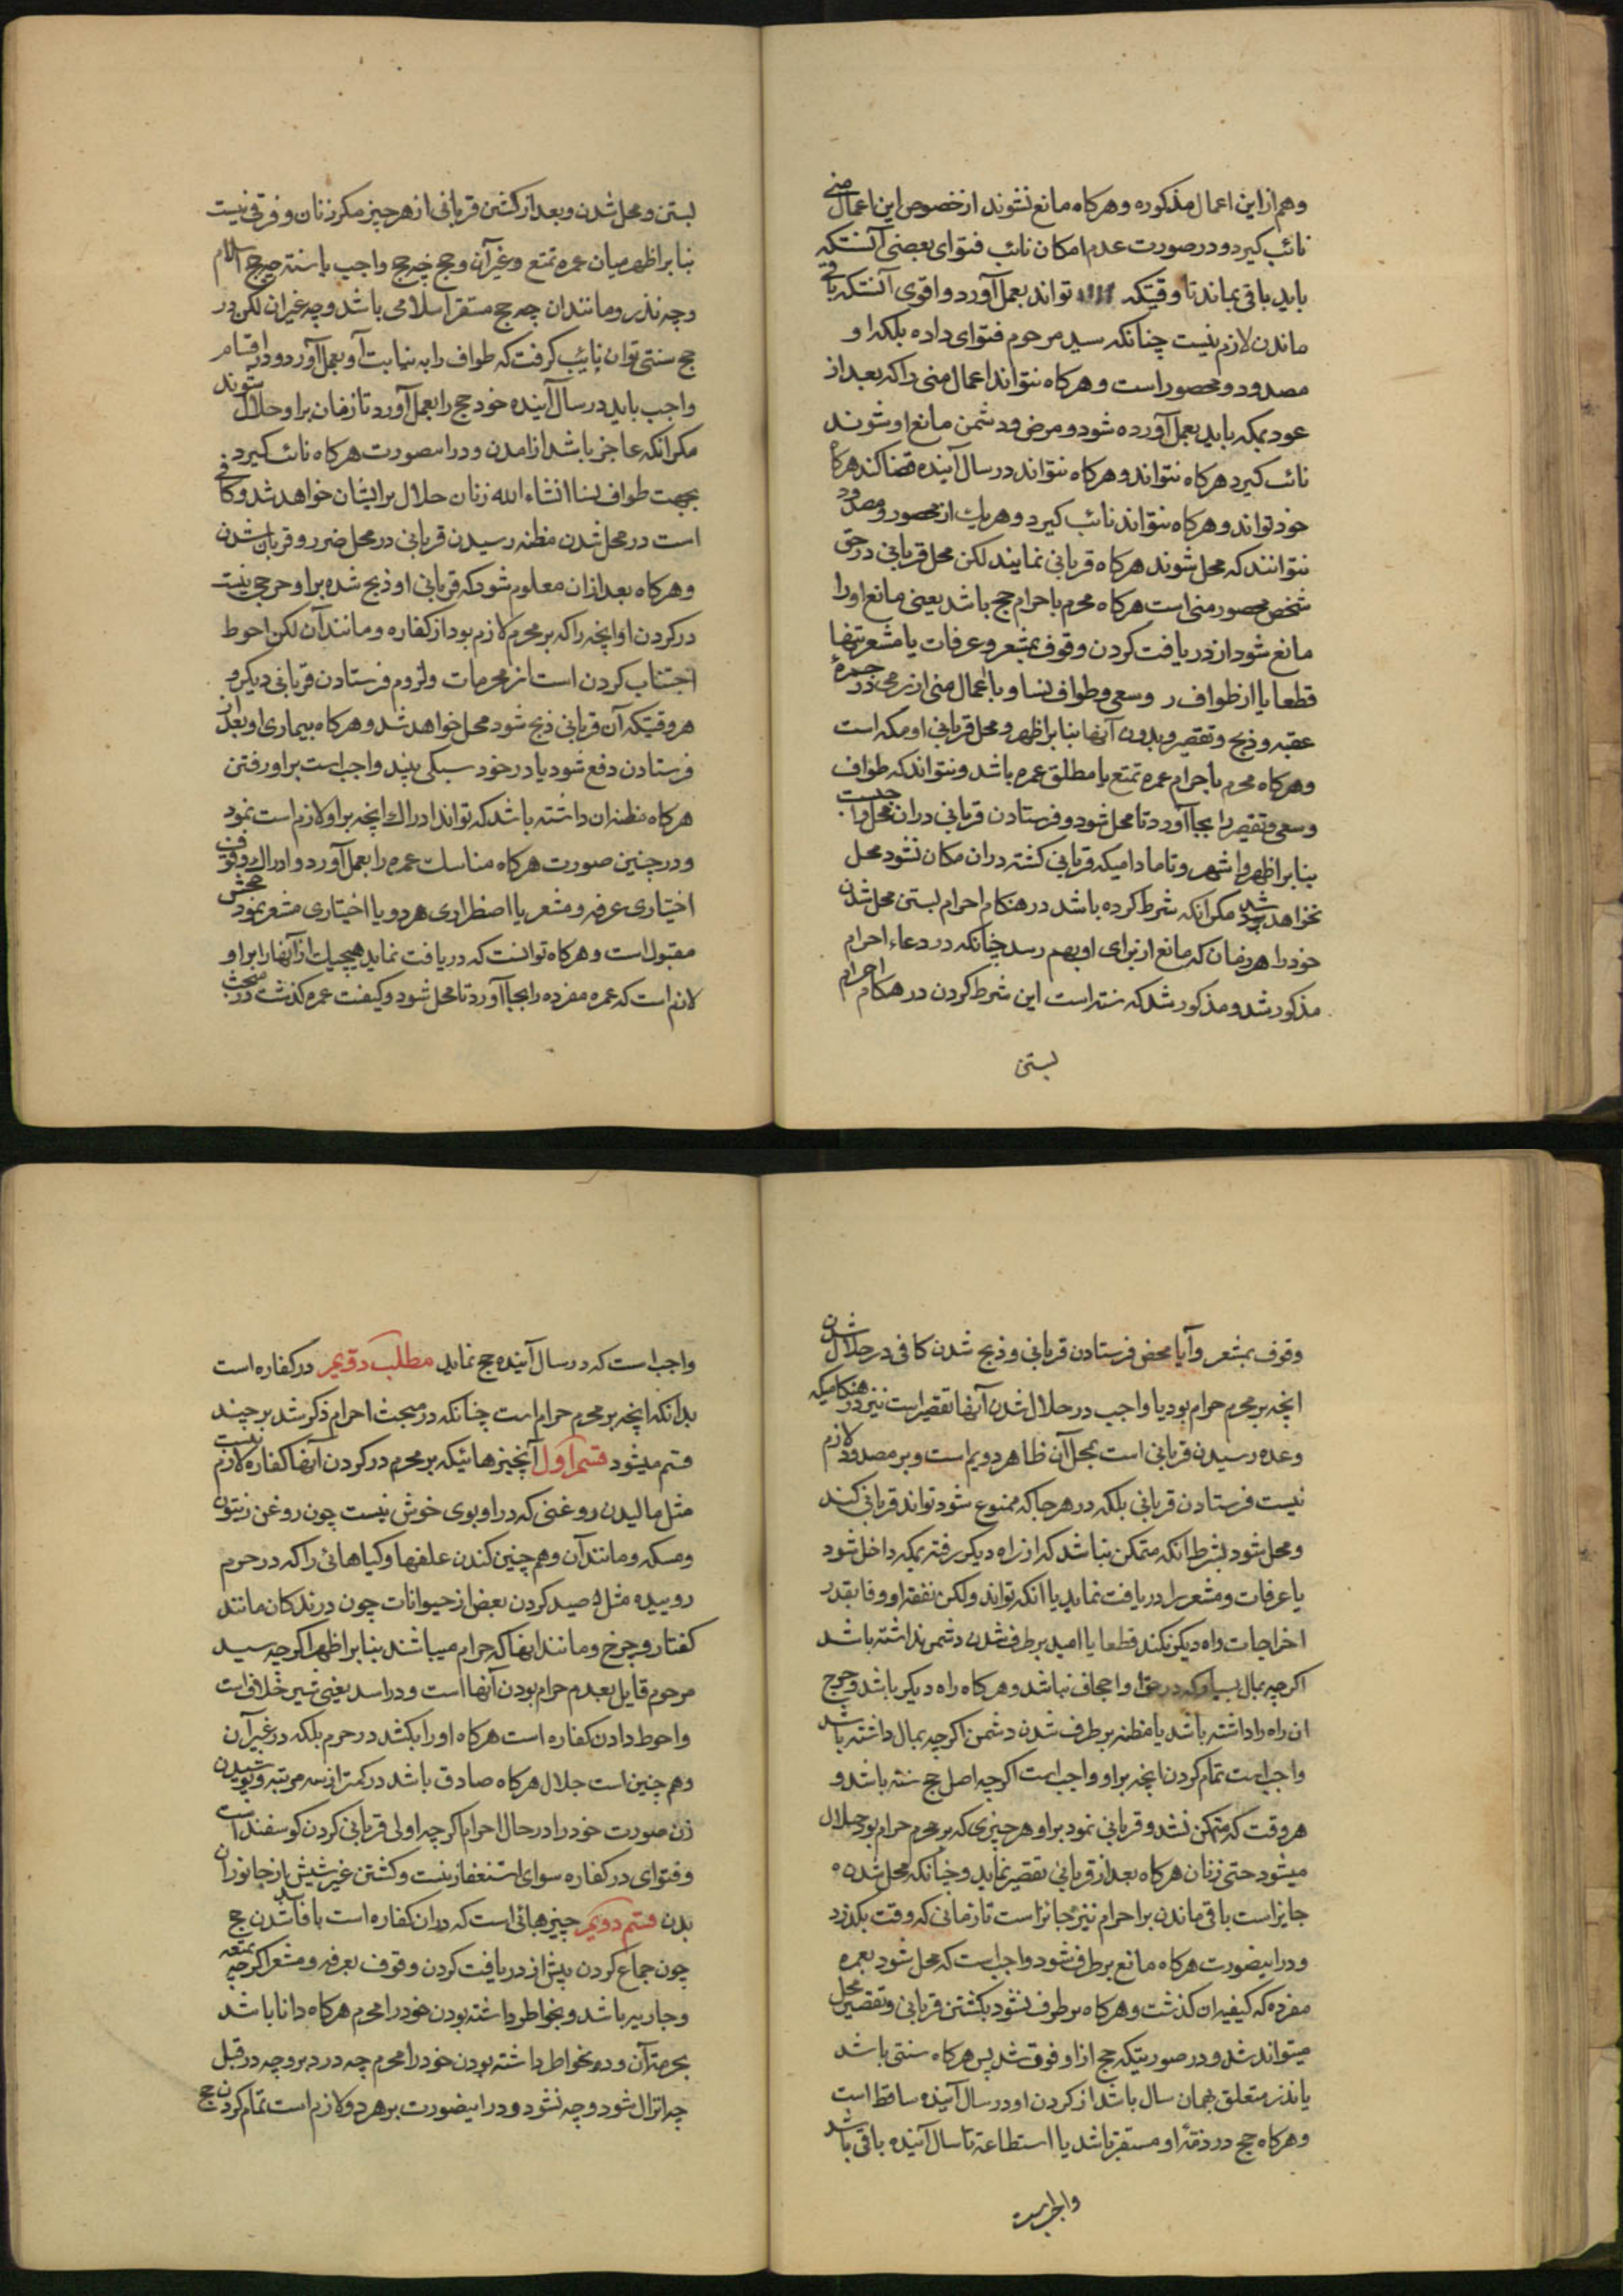 وهم از این اعمال مذکوره وهرکاه مانع نشوند از خصوص این اعمال منی
نائب کیرد ودر صورت عدم امکان نائب فتوای بعضی آنستکه
باید باقی بماند تا وقتیکه تواند بعمل آورد واقوی آنستکه باقی
ماندن لازم نیست چنانکه سید مرحوم فتوای داده بلکه او
مصدود ومحصور است وهرکاه نتواند اعمال منی را که بعد از
عود بمکه باید بعمل آورده شود ومرض ودشمن مانع او شوند
نائب کیرد هرکاه نتواند وهرکاه نتواند در سال آینده قضا کند هرکاه
خود تواند وهرکاه نتواند نائب کیرد وهریك از محصور ومصدود
نتوانند که محل شوند هرکاه قربانی نمایند لکن محل قربانی در حق
شخص محصور منی است هرکاه محرم باحرام حج باشد یعنی مانع اورا
مانع شود از دریافت کردن وقوف بمشعر وعرفات یا مشعر تنها
قطعا یا از طواف وسعی وطواف نسا ویا اعمال منی از رمی در جمرهٔ
عقبه وذبح وتقصیر وبدون آنها بنابر اظهر ومحل قربانی او مکه است
وهرکاه محرم باحرام عمره تمتع یا مطلق عمره باشد ونتواند که طواف
وسعی وتقصیر را بجا آورد تا محل شود وفرستادن قربانی دران محل واجبست
بنابر اظهر واشهر وتا مادامیکه قربانی کشته دران مکان نشود محل
نخواهد شد مکر انکه شرط کرده باشد در هنکام احرام بستن محل شدن
خود را هر زمان که مانع از برای او بهم رسد چنانکه در دعاء احرام
مذکور شد ومذکور شد که سنته است این شرط کردن در هنکام احرام
بستن
بستن ومحل شدن وبعد از کشتن قربانی از هر چیز مکر زنان وفرقی نیست
بنابر اظهر میان عمره تمتع وغیر آن وحج چه حج واجب یا سنته چه حج اسلام
وچه نذر ومانند ان چه حج مستقر اسلامی باشد وچه غیر ان لکن در
حج سنتی توان نایب کرفت که طواف را به نیابت او بعمل آورد ودر اقسام
واجب باید در سال آینده خود حج را بعمل آورد تا زنان بر او حلال شوند
مکر انکه عاجز باشد از امدن ودر اینصورت هرکاه نائب کیرد
بجهت طواف نسا انشاء الله زنان حلال بر ایشان خواهد شد وکافی
است در محل شدن مظنه رسیدن قربانی در محل ضرر وقربان شدن
وهرکاه بعد از ان معلوم شود که قربانی او ذبح نشده بر او حرجی نیست
در کردن او انچه را که بر محرم لازم بود از کفاره ومانند آن لکن احوط
اجتناب کردن است از محرمات ولزوم فرستادن قربانی دیکر و
هر وقتیکه آن قربانی ذبح شود محل خواهد شد وهرکاه بیماری او بعد از
فرستادن دفع شود یا در خود سبکی بیند واجب است بر او رفتن
هرکاه مظنه ان داشته باشد که تواند ادراك انچه بر او لازم است نمود
ودر چنین صورت هرکاه مناسك عمره را بعمل آورد وادراك وقوف
اختیاری عرفه ومشعر یا اضطراری هر دو یا اختیاری مشعر نمود حجش
مقبول است وهرکاه توانست که دریافت نماید هیچیك از آنها را بر او
لازم است که عمره مفرده را بجا آورد تا محل شود وکیفیت عمره کذشت در مبحث
وقوف بمشعر وآیا محض فرستادن قربانی وذبح شدن کافی در حلال شدن
انچه بر محرم حرام بود یا واجب در حلال شدن آنها تقصیر است نیز در هنکامیکه
وعده رسیدن قربانی است بمحل آن ظاهر دویم است وبر مصدود لازم
نیست فرستادن قربانی بلکه در هر جا که ممنوع شود تواند قربانی کند
ومحل شود بشرط انکه متمکن نباشد که از راه دیکر رفته بمکه داخل شود
یا عرفات ومشعر را دریافت نماید یا انکه تواند ولکن نفقه او وفا بقدر
اخراجات راه دیکر نکند قطعا یا امید برطرف شدن دشمن نداشته باشد
اکرچه بمال بسیار که در حق او اجحاف نباشد وهرکاه راه دیکر باشد وخرج
ان راه را داشته باشد یا مظنه برطرف شدن دشمن اکرچه بمال داشته باشد
واجب است تمام کردن انچه بر او واجب است اکرچه اصل حج سنته باشد و
هر وقت که متمکن نشد وقربانی نمود بر او هر چیزی که بر محرم حرام بود حلال
میشود حتی زنان هرکاه بعد از قربانی تقصیر نماید وچنانکه محل شدن
جایز است باقی ماندن بر احرام نیز جائز است تا زمانی که وقت بکذرد
ودر اینصورت هرکاه مانع برطرف شود واجب است که محل شود بعمره
مفرده که کیفیه ان کذشت وهرکاه برطرف نشود بکشتن قربانی وتقصیر محل
میتواند شد ودر صورتیکه حج از او فوت شد پس هرکاه سنتی باشد
یا نذر متعلق بهمان سال باشد از کردن او در سال آینده ساقط است
وهرکاه حج در ذمهٔ او مستقر باشد یا استطاعة تا سال آینده باقی باشد
واجب است
واجب است که در سال آینده حج نماید مطلب دویم در کفاره است
بدانکه انچه بر محرم حرام است چنانکه در مبحث احرام ذکر شد بر چند
قسم میشود قسم اول آنچیزهائیکه بر محرم در کردن آنها کفاره لازم نیست
مثل مالیدن روغنی که در او بوی خوش نیست چون روغن زیتون
ومسکه ومانند آن وهم چنین کندن علفها وکیاهائی را که در حرم
روییده مثل صید کردن بعض از حیوانات چون درندکان مانند
کفتار وچرخ ومانند اینها که حرام میباشند بنابر اظهر اکرچه سید
مرحوم قایل بعدم حرام بودن آنها است ودر اسد یعنی شیر خلافست
واحوط دادن کفاره است هرکاه اورا بکشد در حرم بلکه در غیر آن
وهم چنین است جدال هرکاه صادق باشد در کمتر از سه مرتبه وپوشیدن
زن صورت خود را در حال احرام اکرچه اولی قربانی کردن کوسفند است
وفتوای در کفاره سوای استغفار نیست وکشتن غیر شپش از جانوران
بدن قسم دویم چیزهائی است که در ان کفاره است با فاسد شدن حج
چون جماع کردن پیش از دریافت کردن وقوف بعرفه ومشعر اکرچه بمتعه
وجاریه باشد وبخواطر داشته بودن خود را محرم هرکاه دانا باشد
بحرمة آن ودر بخواطر داشته بودن خود را محرم چه در دبر وچه در قبل
چه انزال شود وچه نشود ودر اینصورت بر هر دو لازم است تمام کردن حج